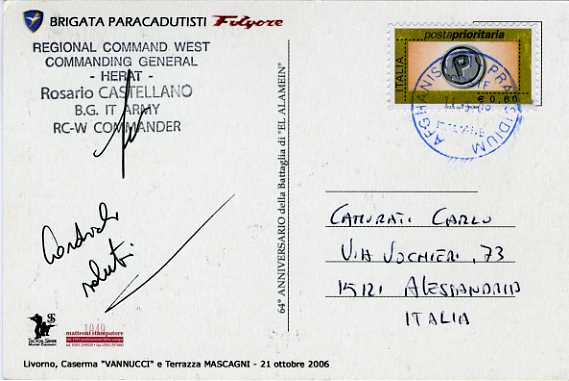 BRIGATA PARACADUTISTI Folgore
REGIONAL COMMAND WEST
COMMANDING GENERAL
- HERAT -
Rosario CASTELLANO
B.G. IT ARMY
RC-W COMMANDER
Cordiali
saluti
64° ANNIVERSARIO della Battaglia di "EL ALAMEIN"
postaprioritaria
ITALIA
€ 0,60
CAMURATI CARLO
VIA VOCHIERI, 73
15121 ALESSANDRIA
ITALIA
1049
Livorno, Caserma "VANNUCCI" e Terrazza MASCAGNI - 21 ottobre 2006